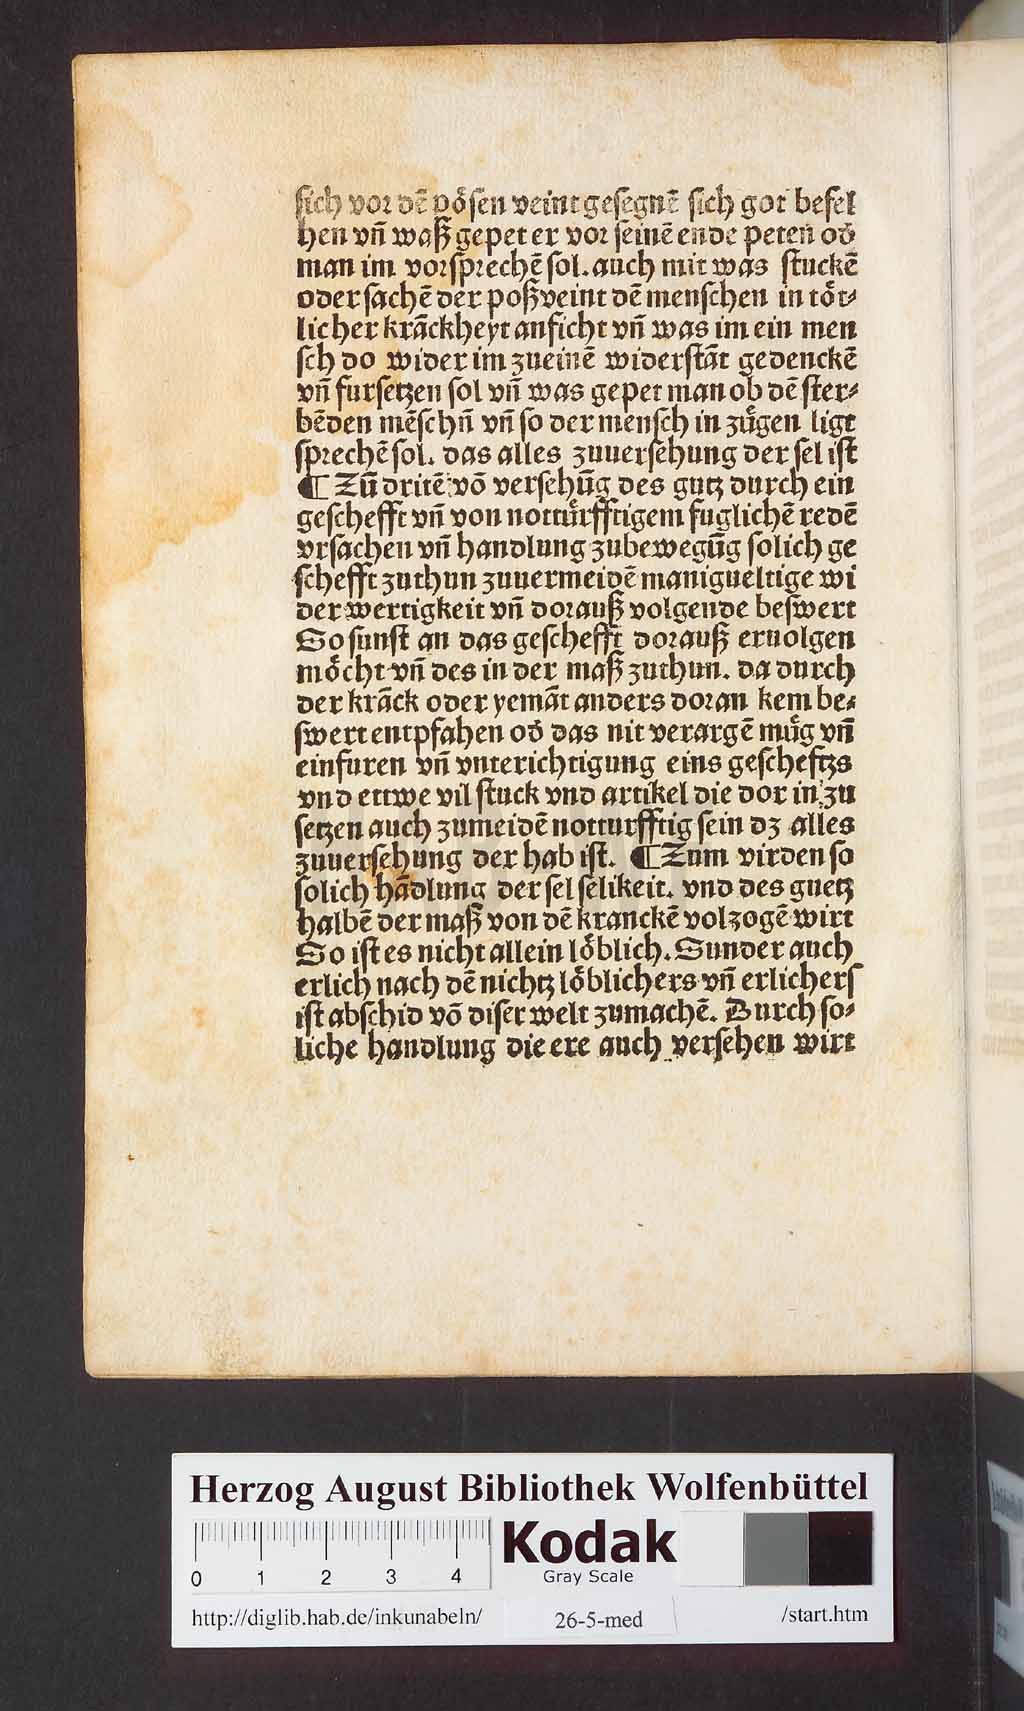 sich vor dē pösen veint gesegnē sich got befel
hen vñ waß gepet er vor seinē ende peten od
man im vorsprechē sol. auch mit was stuckē
oder sachē der poß veint dē menschen in töt-
licher krāckheyt anficht vñ was im ein men
sch do wider im zueinē widerstāt gedenckē
vñ fursetzen sol vñ was gepet man ob dē ster-
bēden mēschñ vñ so der mensch in zügen ligt
sprechē sol. das alles zuuersehung der sel ist
¶ Zū dritē vō versehūg des gutz durch ein
geschefft vñ von nottürfftigem fuglichē redē
vrsachen vñ handlung zubewegūg solich ge
schefft zuthun zuuermeidē manigueltige wi
der wertigkeit vñ dorauß volgende beswert
So sunst an das geschefft dorauß eruolgen
möcht vñ des in der maß zuthun. da durch
der krāck oder yemāt anders doran kem be-
swert entpfahen od das nit verargē müg vñ
einfuren vñ vnterichtigung eins gescheftzs
vnd ettwe vil stuck vnd artikel die dor in zu
setzen auch zumeidē notturfftig sein dz alles
zuuersehung der hab ist. ¶ Zum virden so
solich hādlung der sel selikeit. vnd des guetz
halbē der maß von dē kranckē volzogē wirt
So ist es nicht allein löblich. Sunder auch
erlich nach dē nichtz löblichers vñ erlichers
ist abschid vō diser welt zumachē. Durch so-
liche handlung die ere auch versehen wirt
Herzog August Bibliothek Wolfenbüttel
0 1 2 3 4
Kodak
Gray Scale
http://diglib.hab.de/inkunabeln/ 26-5-med /start.htm